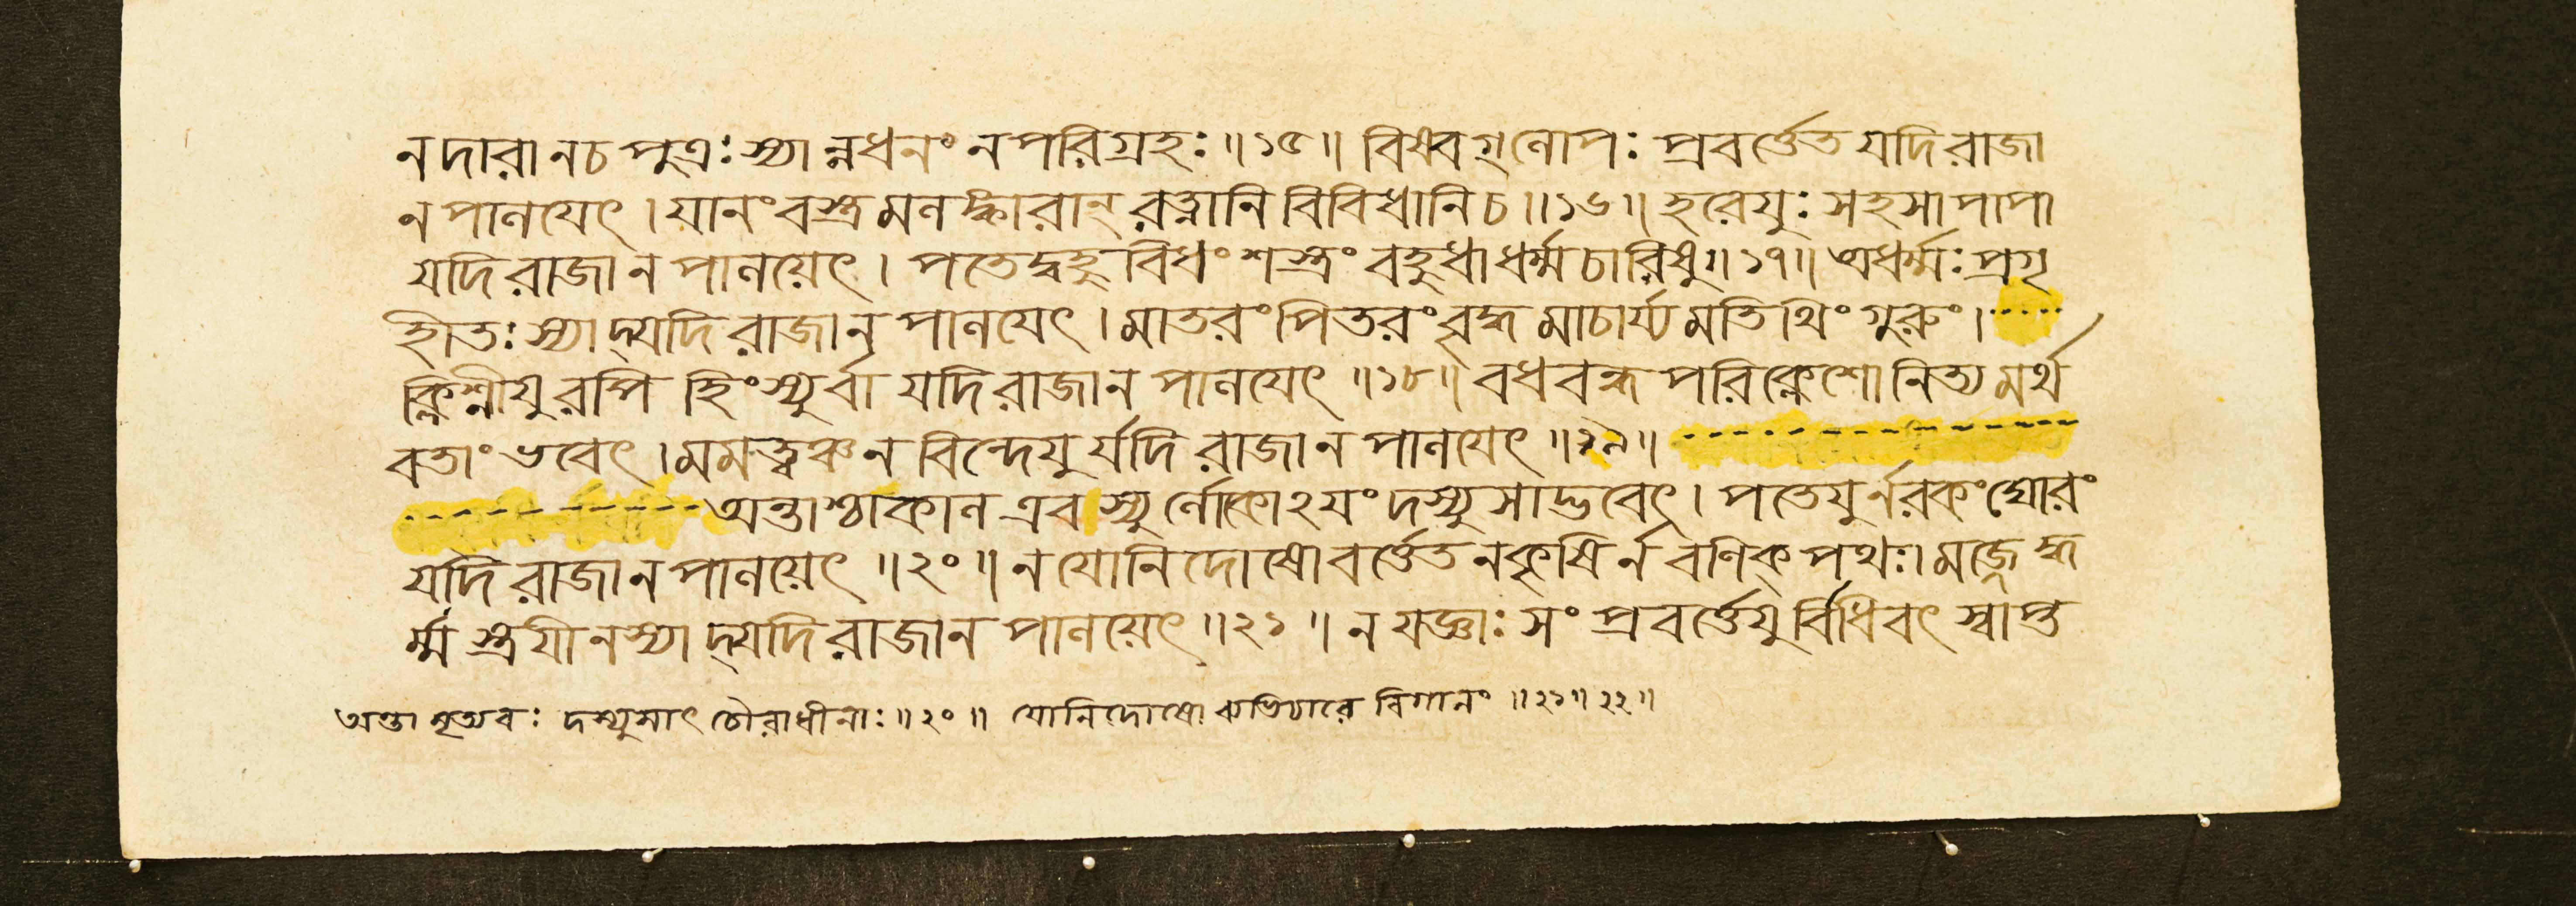 ন দারা ন চ পুত্রঃ স্যান্ন ধনং ন পরিগ্রহঃ ॥১৫॥ বিষ্বগ্লোপঃ প্রবর্ত্তেত যদি রাজা
ন পালয়েৎ । যানং বস্ত্রমলঙ্কারান্ রত্নানি বিবিধানি চ ॥১৬॥ হরেযুঃ সহসা পাপা
যদি রাজা ন পালয়েৎ । পতেদ্বহুবিধং শস্ত্রং বহুধা ধর্ম্মচারিষু ॥১৭॥ অধর্ম্মঃ প্রগৃ
হীতঃ স্যাদ্যদি রাজা ন পালয়েৎ । মাতরং পিতরং বৃদ্ধমাচার্য্যমতিথিং গুরুং ।
ক্লিশ্নীযুরপি হিংস্যুর্বা যদি রাজা ন পালয়েৎ ॥১৮॥ বধবন্ধপরিক্লেশো নিত্যমর্থ
বতাং ভবেৎ । মমত্বঞ্চ ন বিন্দেযুর্যদি রাজা ন পালয়েৎ ॥১৯॥
অন্তাশ্চাকাল এব স্যুর্লোকোঽয়ং দস্যুসাদ্ভবেৎ । পতেযুর্নরকং ঘোরং
যদি রাজা ন পালয়েৎ ॥২০॥ ন যোনিদোষো বর্ত্তেত ন কৃষির্ন বণিক্পথঃ । মজ্জেদ্ধ
র্ম্মস্ত্রয়ী ন স্যাদ্যদি রাজা ন পালয়েৎ ॥২১॥ ন যজ্ঞাঃ সংপ্রবর্ত্তেযুর্বিধিবৎ স্বাপ্ত
অন্তা মৃত্যবঃ দস্যুসাৎ চৌরাধীনাঃ ॥২০॥ যোনিদোষো ব্যভিচারে বিগানং ॥২১॥২২॥